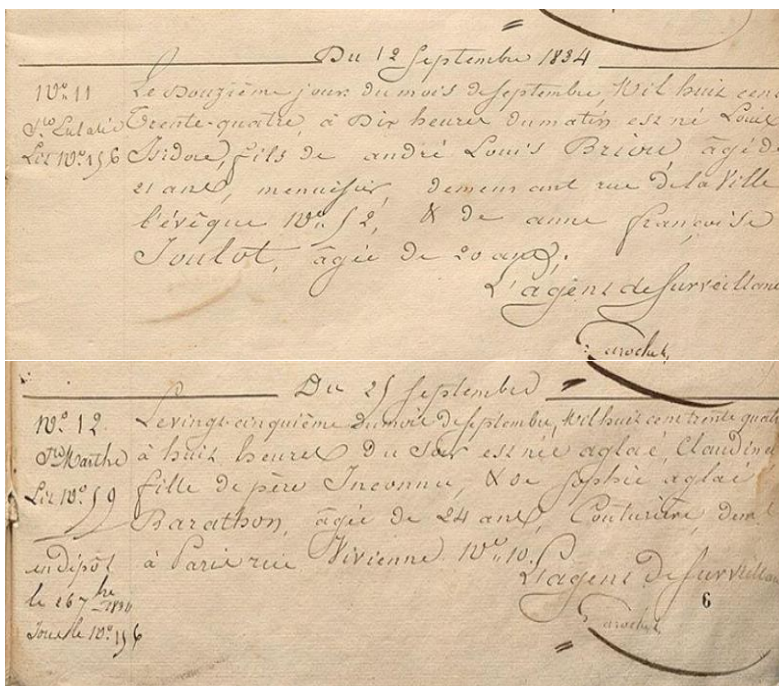 Du 12 Septembre 1834
No. 11
Ste Eulalie
Lit No. 156
Le Douzième jour du mois de Septembre, Mil huit cent
Trente-quatre, à Dix heures du matin est né Louis
Isidore, fils de andré Louis Briou âgé de
21 ans, menuisier, demeurant rue de la Ville
l'évêque No. 52, & de anne françoise
Joulot, âgée de 20 ans.
L'agent de Surveillance
Larochet
Du 25 Septembre
No. 12
Ste Marthe
Lit No. 59
en dépôt
le 26 7bre 1834
Sous le No. 156
Le vingt-cinquième du mois de Septembre, Mil huit cent trente quatre
à huit heures du soir est née aglaé, Claudine
fille de père Inconnu, & de sophie aglaé
Barathon, âgée de 24 ans, Couturière, demt
à Paris rue Vivienne No. 10.
L'agent de Surveillance
6
Larochet